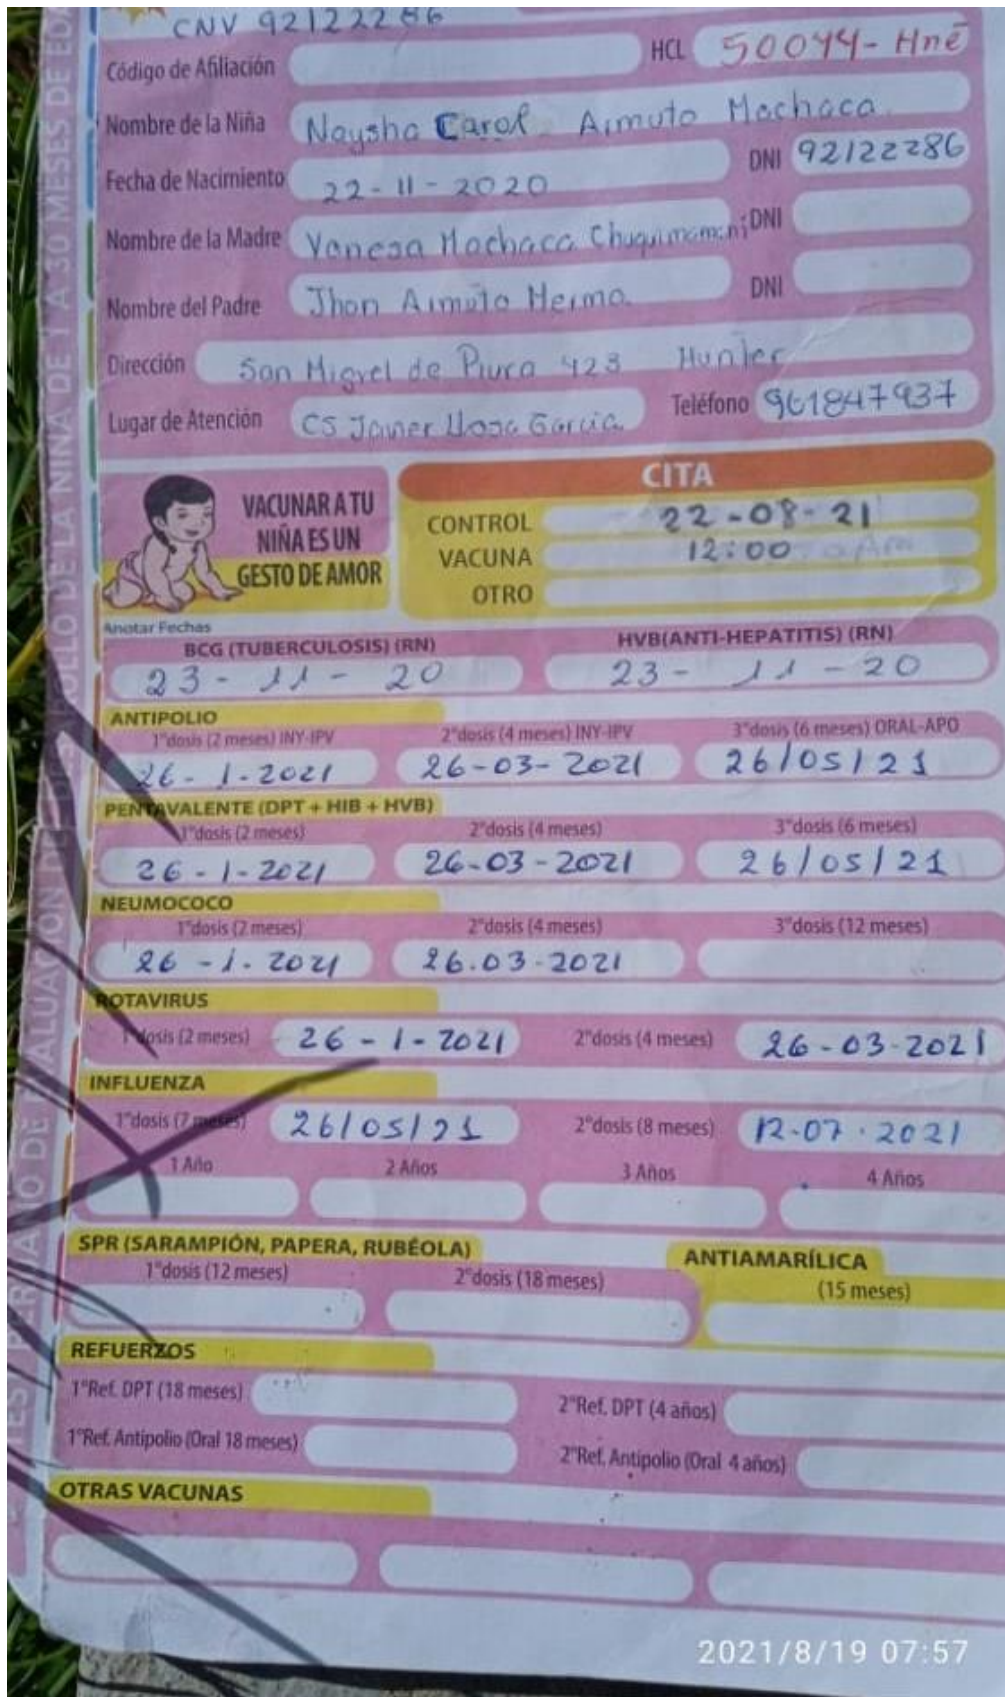 CNV 92122286
Código de Afiliación HCL 50044-Hne
Nombre de la Niña Naysha Carol Armuto Machaca
DNI 92122286
Fecha de Nacimiento 22-11-2020
Nombre de la Madre Vanesa Machaca Chuquimamani DNI
Nombre del Padre Jhon Armuto Merma DNI
Dirección San Miguel de Piura 423 Hunter
Lugar de Atención CS Javier Llosa Garcia Teléfono 961847937
CITA
VACUNAR A TU
NIÑA ES UN
GESTO DE AMOR
CONTROL 22-08-21
VACUNA 12:00
OTRO
Anotar Fechas
BCG (TUBERCULOSIS) (RN) HVB(ANTI-HEPATITIS) (RN)
23-11-20 23-11-20
ANTIPOLIO
1°dosis (2 meses) INY-IPV 2°dosis (4 meses) INY-IPV 3°dosis (6 meses) ORAL-APO
26-1-2021 26-03-2021 26/05/21
PENTAVALENTE (DPT + HIB + HVB)
1°dosis (2 meses) 2°dosis (4 meses) 3°dosis (6 meses)
26-1-2021 26-03-2021 26/05/21
NEUMOCOCO
1°dosis (2 meses) 2°dosis (4 meses) 3°dosis (12 meses)
26-1-2021 26.03-2021
ROTAVIRUS
1°dosis (2 meses) 26-1-2021 2°dosis (4 meses) 26-03-2021
INFLUENZA
1°dosis (7 meses) 26/05/21 2°dosis (8 meses) 12-07-2021
1 Año 2 Años 3 Años 4 Años
SPR (SARAMPIÓN, PAPERA, RUBÉOLA) ANTIAMARÍLICA
1°dosis (12 meses) 2°dosis (18 meses) (15 meses)
REFUERZOS
1°Ref. DPT (18 meses) 2°Ref. DPT (4 años)
1°Ref. Antipolio (Oral 18 meses) 2°Ref. Antipolio (Oral 4 años)
OTRAS VACUNAS
2021/8/19 07:57